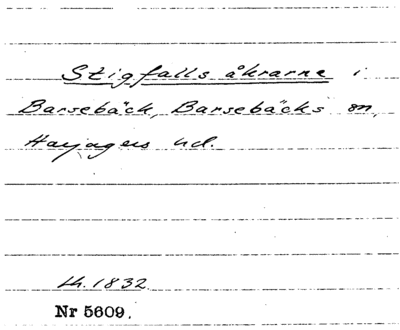 Stigfalls åkrarna i
Barsebäck, Barsebäcks sn,
Harjagers hd.
Lh. 1832
Nr 5609.